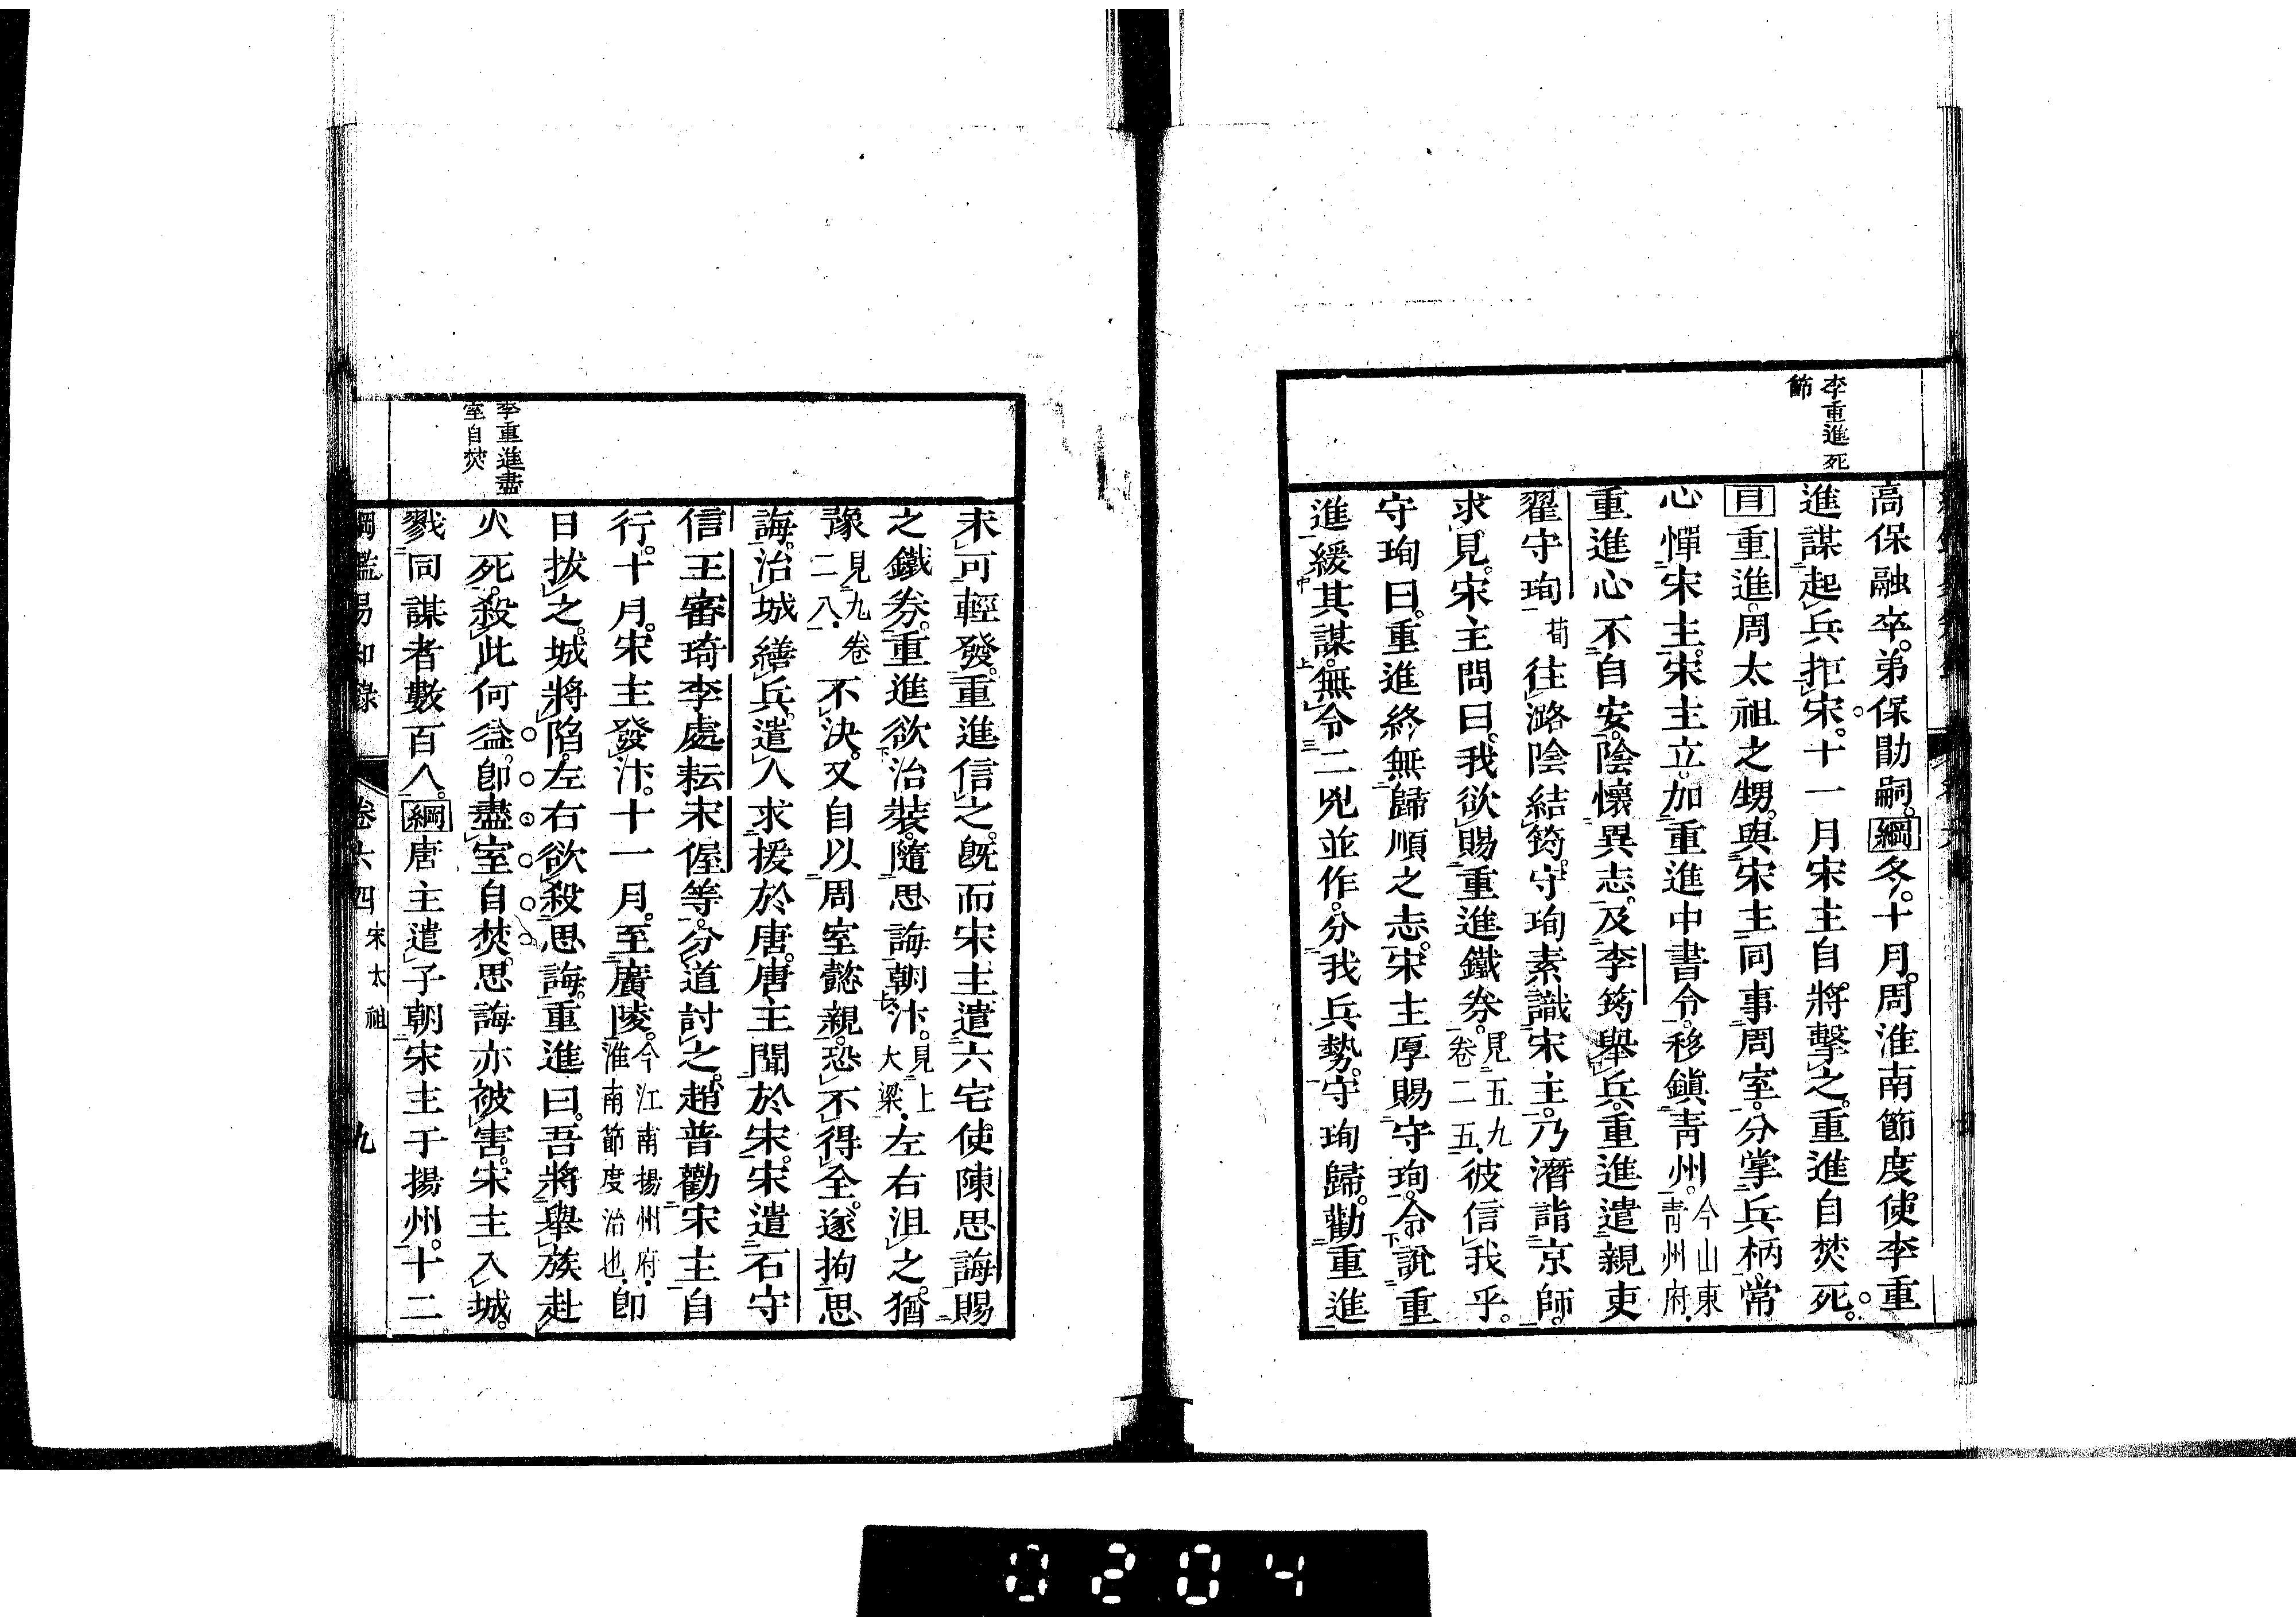 李重進死
節
高保融卒。弟保勖嗣。綱冬。十月。周淮南節度使李重
進謀起兵拒宋。十一月宋主自將擊之。重進自焚死。
目重進。周太祖之甥。與宋主同事周室。分掌兵柄。常
心憚宋主。宋主立。加重進中書令。移鎮青州。今山東青州府.
重進心不自安。陰懷異志。及李筠舉兵。重進遣親吏
翟守珣荀往潞陰結筠。守珣素識宋主。乃潛詣京師。
求見。宋主問曰。我欲賜重進鐵券。見五九卷二五.彼信我乎。
守珣曰。重進終無歸順之志。宋主厚賜守珣。令說重
進緩其謀。無令二兇並作。分我兵勢。守珣歸。勸重進
李重進盡
室自焚
未可輕發。重進信之。既而宋主遣六宅使陳思誨賜
之鐵券。重進欲治裝。隨思誨朝汴。見上大梁.左右沮之。猶
豫見九卷二八.不決。又自以周室懿親。恐不得全。遂拘思
誨。治城繕兵。遣人求援於唐。唐主聞於宋。宋遣石守
信王審琦李處耘宋偓等。分道討之。趙普勸宋主自
行。十月。宋主發汴。十一月。至廣陵。今江南揚州府.淮南節度治也.即
日拔之。城將陷。左右欲殺思誨。重進曰。吾將舉族赴
火死。殺此何益。即盡室自焚。思誨亦被害。宋主入城。
戮同謀者數百人。綱唐主遣子朝宋主于揚州。十二
綱鑑易知錄 卷六四 宋太祖 九
0204